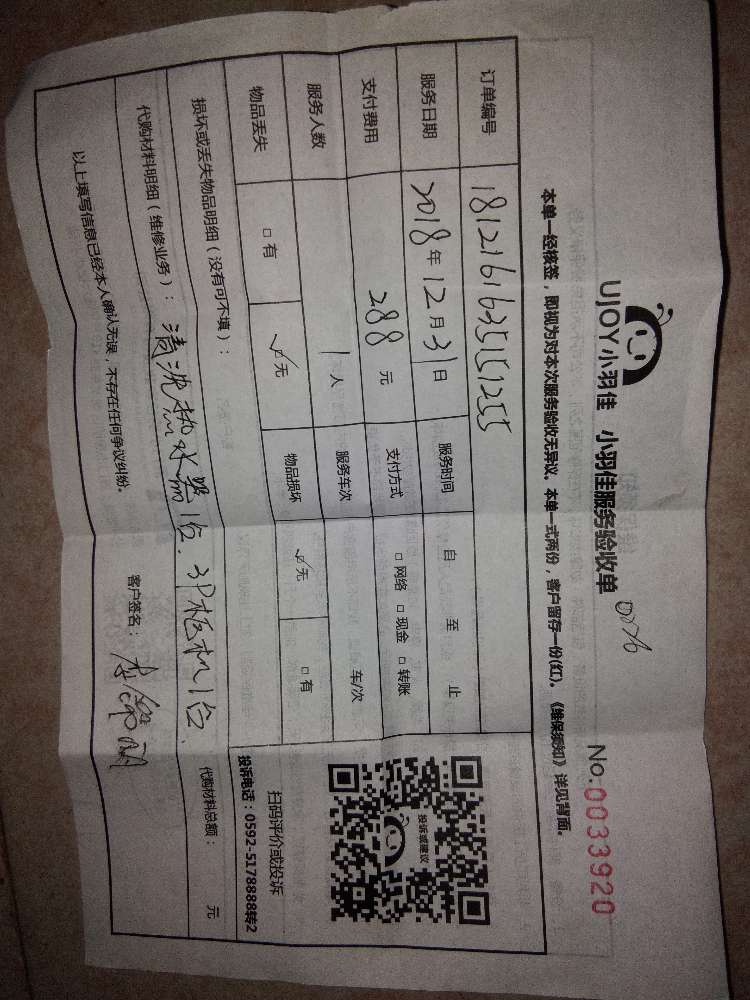 UJOY小羽佳 小羽佳服务验收单 0076
No.0033920
本单一经核签，即视为对本次服务验收无异议。本单一式两份，客户留存一份(红)。《维保须知》详见背面。
订单编号 1812161635151255
服务日期 2018年12月31日 服务时间 自 至 止
支付费用 288元 支付方式 □网络 □现金 □转账
服务人数 1人 服务车次 车/次
物品丢失 □有 ☑无 物品损坏 ☑无 □有
损坏或丢失物品明细（没有可不填）：
投诉或建议
扫码评价或投诉
投诉电话：0592-5178888转2
代购材料明细（维修业务）：清洗热水器1台、3P柜机1台. 代购材料总额： 元
以上填写信息已经本人确认无误，不存在任何争议纠纷。 客户签名：